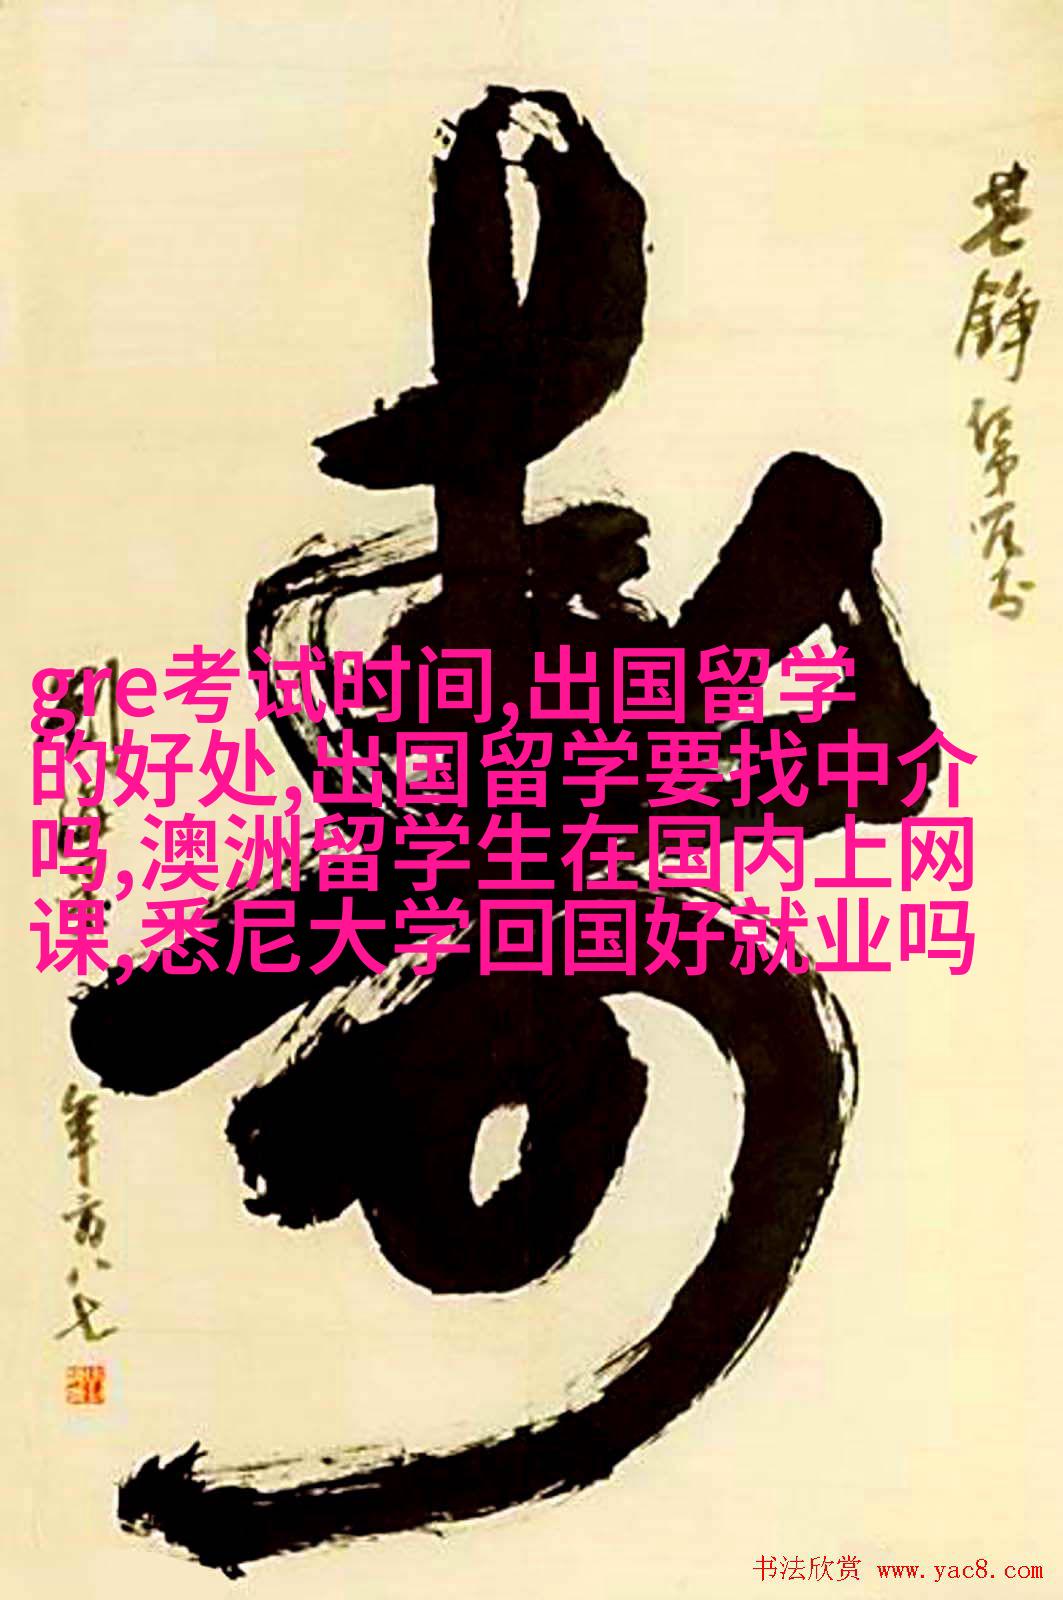 gre考试时间,出国留学
的好处,出国留学要找中介
吗,澳洲留学生在国内上网
课,悉尼大学回国好就业吗
寿
年方八七
书法欣赏 www.yac8.com